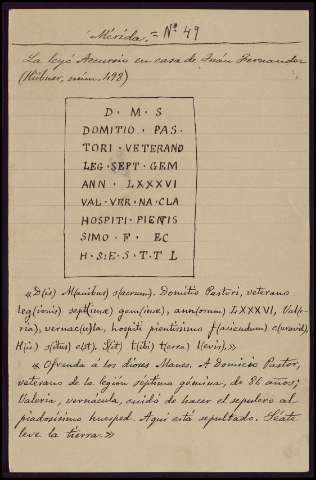 Mérida.= Nº 49
La leyó Accursio en casa de Juan Fernandez
(Hübner, núm. 492)
D · M · S
DOMITIO · PAS·
TORI · VETERANO
LEG · SEPT · GEM
ANN · LXXXVI
VAL · VER · NA · CLA
HOSPITI · PIENTIS
SIMO · F · EC
H · S : E · S · T · T · L
«D(is) M(anibus) s(acrum). Domitio Pastori, veterano
leg(ionis) sept(imæ) gem(inæ), ann(orum) LXXXVI, Val(e-
ria), vernac(u)la, hospiti pientissimo f(aciendum) c(uravit).
H(ic) s(itus) e(st). S(it) t(ibi) t(erra) l(evis),»
« Ofrenda á los dioses Manes. A Domicio Pastor,
veterano de la legion séptima gémina, de 86 años;
Valeria, vernácula, cuidó de hacer el sepulcro al
piadosísimo huesped. Aquí está sepultado. Séate
leve la tierra.»